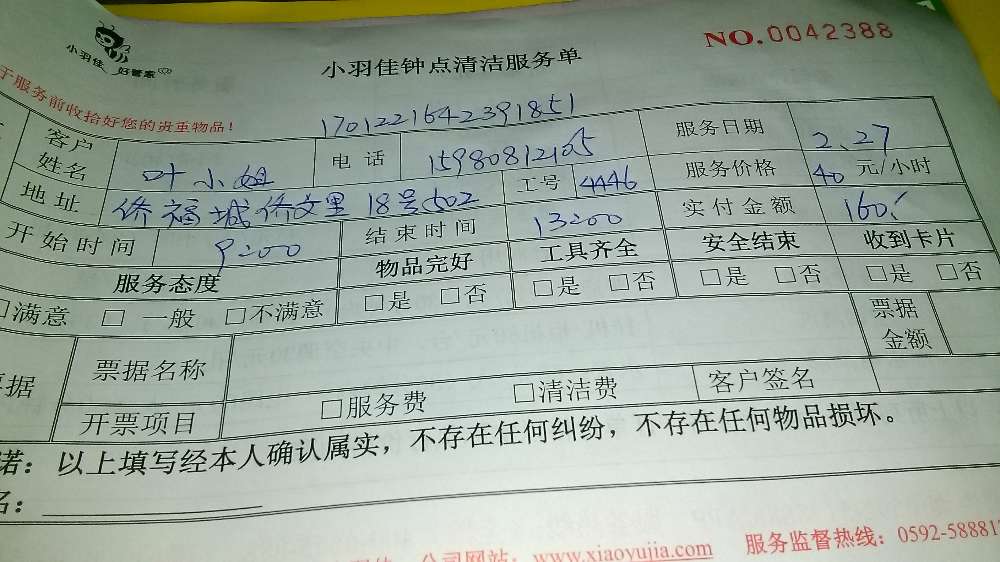 小羽佳 好管家
小羽佳钟点清洁服务单
NO.0042388
于服务前收拾好您的贵重物品!
1701221642391851
客户姓名 叶小姐 电话 15980812105 服务日期 2、27
地址 侨福城侨文里18号502 工号 4446 服务价格 40 元/小时
开始时间 9:00 结束时间 13:00 实付金额 160.
服务态度 物品完好 工具齐全 安全结束 收到卡片
□满意 □ 一般 □不满意 □是 □否 □是 □否 □是 □否 □是 □否
票据名称 票据金额
据
开票项目 □服务费 □清洁费 客户签名
诺：以上填写经本人确认属实，不存在任何纠纷，不存在任何物品损坏。
名：
公司网站：www.xiaoyujia.com 服务监督热线：0592-588812